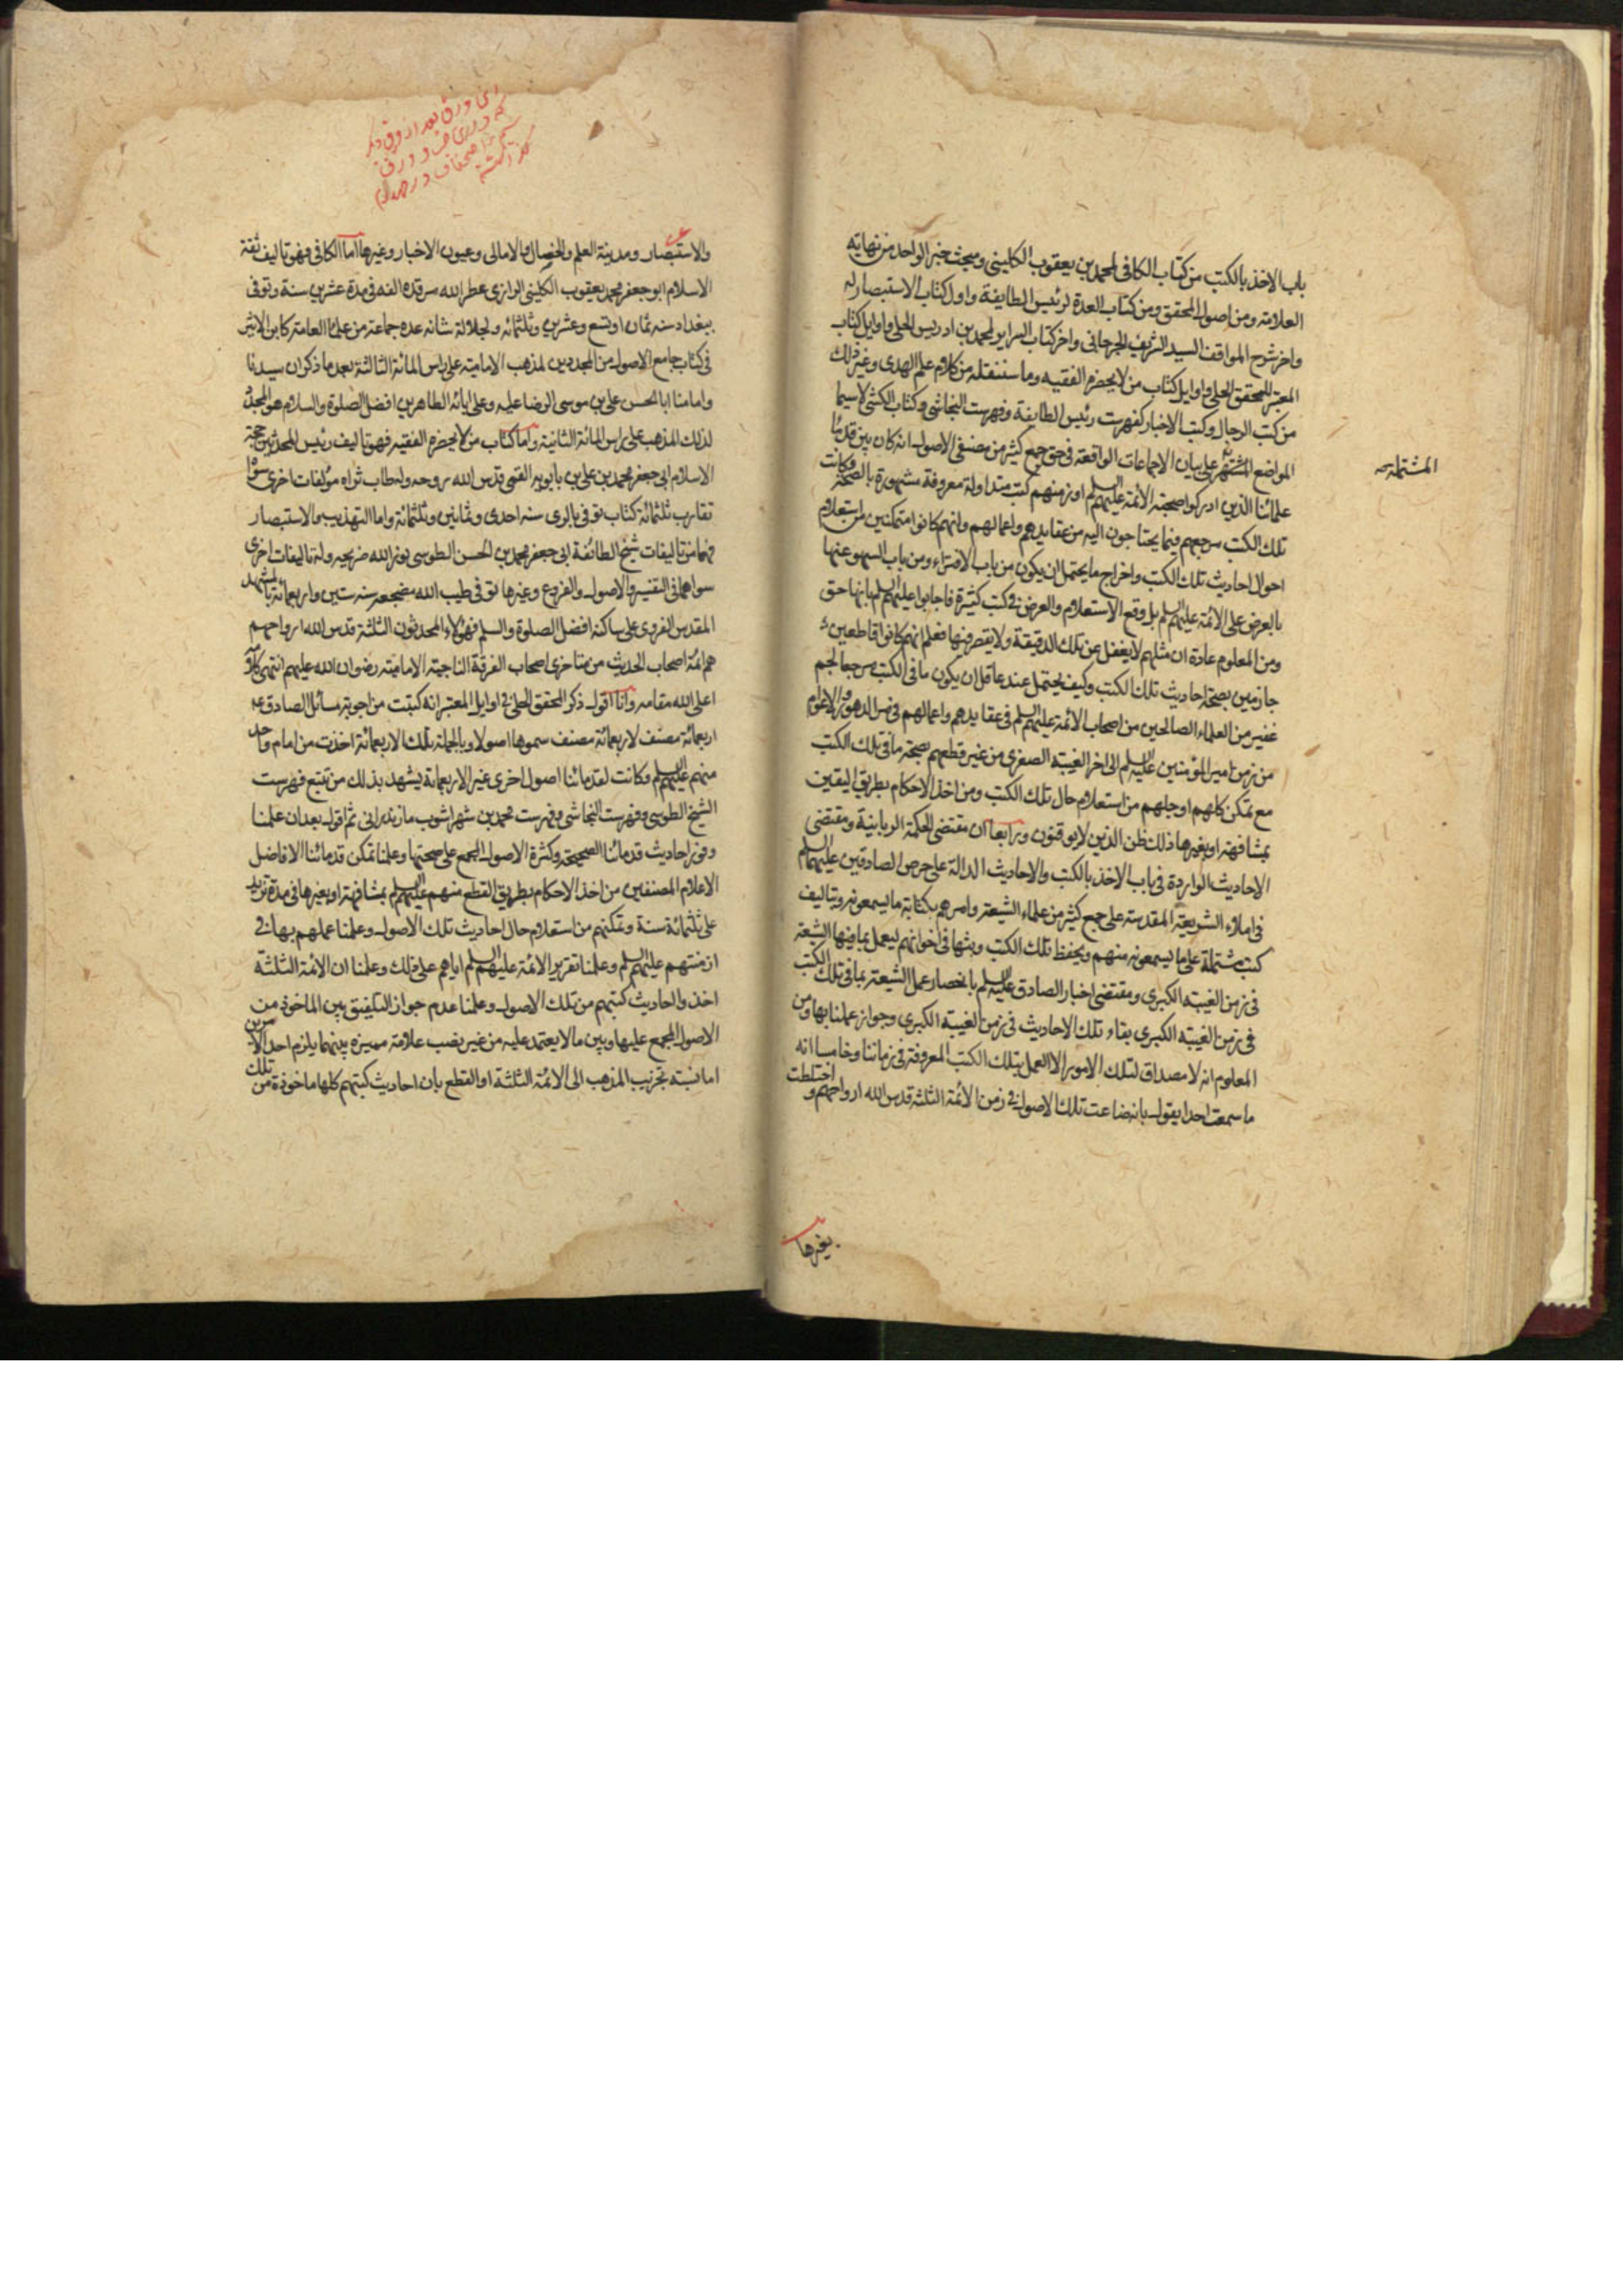 باب الاخذ بالكتب من كتاب الكافى لمحمد بن يعقوب الكلينى ومبحث خبر الواحد من نهاية
العلامة ومن اصول المحقق ومن كتاب العدة لرئيس الطايفة واول كتاب الاستبصار له
واخر شرح المواقف السيد الشريف الجرجانى واخر كتاب السراير لمحمد بن ادريس الحلى واوايل كتاب
المعتبر للمحقق الحلى واوايل كتاب من لا يحضره الفقيه وما سننقله من كلام علم الهدى وغير ذلك
من كتب الرجال وكتب الاخبار كفهرست رئيس الطايفة وفهرست النجاشى وكتاب الكشى لاسيما
المواضع المشتهرة على بيان الاجماعات الواقعة فى حق جمع كثير من مصنفى الاصول انه كان بين قدماء
المشتملة صح
علمائنا الذين ادركوا صحبة الائمة عليهم السلم او زمنهم كتب متداولة معروفة مشهورة بالصحة وكانت
تلك الكتب مرجعهم فيما يحتاجون اليه من عقايدهم واعمالهم وانهم كانوا متمكنين من استعلام
احوال احاديث تلك الكتب واخراج ما يحتمل ان يكون من باب الافتراء ومن باب السهو عنها
بالعرض على الائمة عليهم السلم بل وقع الاستعلام والعرض فى كتب كثيرة فاجابوا عليهم السلم بانها حق
ومن المعلوم عادة ان مثلهم لا يغفل عن تلك الدقيقة ولا يقصر فيها فعلم انهم كانوا قاطعين
جازمين بصحة احاديث تلك الكتب وكيف يحتمل عند عاقل ان يكون ما فى الكتب مرجعا لجم
غفير من العلماء الصالحين من اصحاب الائمة عليهم السلم فى عقايدهم واعمالهم فى مر الدهور والاعوام
من زمن امير المؤمنين عليه السلم الى اخر الغيبة الصغرى من غير قطعهم بصحة ما فى تلك الكتب
مع تمكن كلهم او جلهم من استعلام حال تلك الكتب ومن اخذ الاحكام بطريق اليقين
بمشافهة او بغيرها ذلك ظن الذين لا يوقنون ورابعا ان مقتضى الحكمة الربانية ومقتضى
الاحاديث الواردة فى باب الاخذ بالكتب والاحاديث الدالة على حرص الصادقين عليهما السلم
فى املاء الشريعة المقدسة على جمع كثير من علماء الشيعة وامرهم بكتابة ما يسمعونه وتاليف
كتب مشتملة على ما يسمعونه منهم وبحفظ تلك الكتب وبثها فى اخوانهم ليعمل بما فيها الشيعة
فى زمن الغيبة الكبرى ومقتضى اخبار الصادق عليه السلم بانحصار عمل الشيعة بما فى تلك الكتب
فى زمن الغيبة الكبرى بقاء تلك الاحاديث فى زمن الغيبة الكبرى وجواز عملنا بها ومن
المعلوم انه لا مصداق لتلك الامور الا العمل بتلك الكتب المعروفة فى زماننا وخامسا انه
ما سمعت احدا يقول بانه ضاعت تلك الاصول فى زمن الائمة الثلثة قدس الله ارواحهم و اختلطت
بغيرها
والاستبصار ومدينة العلم والخصال والامالى وعيون الاخبار وغيرها اما الكافى فهو تاليف ثقة
الاسلام ابو جعفر محمد يعقوب الكلينى الرازى عطر الله مرقده الفه فى مدة عشرين سنة وتوفى
ببغداد سنه ثمان او تسع وعشرين وثلثمائه ولجلالة شانه عده جماعة من علماء العامة كابن الاثير
فى كتاب جامع الاصول من المجددين لمذهب الامامية على راس المائة الثالثة بعد ما ذكر ان سيدنا
وامامنا ابا الحسن على بن موسى الرضا عليه وعلى ابائه الطاهرين افضل الصلوة والسلام هو المجدد
لذلك المذهب على راس المائة الثانية واما كتاب من لا يحضره الفقيه فهو تاليف رئيس المحدثين حجة
الاسلام ابى جعفر محمد بن على بن بابويه القمى قدس الله روحه وله طاب ثراه مؤلفات اخرى سواه
تقارب ثلثمائة كتاب توفى بالرى سنه احدى وثمانين وثلثمائة واما التهذيب والاستبصار
فهما من تاليفات شيخ الطائفة ابى جعفر محمد بن الحسن الطوسى نور الله ضريحه وله تاليفات اخرى
سواهما فى التفسير والاصول والفروع وغيرها توفى طيب الله مضجعه سنه ستين واربعمائة بالمشهد
المقدس الغروى على ساكنه افضل الصلوة والسلم فهؤلاء المحدثون الثلثة قدس الله ارواحهم
هم ائمة اصحاب الحديث من متاخرى اصحاب الفرقة الناجية الامامية رضوان الله عليهم انتهى كلامه
اعلى الله مقامه وانا اقول ذكر المحقق الحلى فى اوايل المعتبر انه كتبت من اجوبة مسائل الصادق ع
اربعمائة مصنف لاربعمائة مصنف سموها اصولا وبالجملة تلك الاربعمائة اخذت من امام واحد
منهم عليهم السلم وكانت لقدمائنا اصول اخرى غير الاربعماية يشهد بذلك من تتبع فهرست
الشيخ الطوسى وفهرست النجاشى وفهرست محمد بن شهراشوب مازندرانى ثم اقول بعد ان علمنا
وفور احاديث قدمائنا الصحيحة وكثرة الاصول المجمع على صحتها وعلمنا تمكن قدمائنا الافاضل
الاعلام المصنفين من اخذ الاحكام بطريق القطع منهم عليهم السلم بمشافهة او بغيرها فى مدة تزيد
على ثلثمائة سنة وتمكنهم من استعلام حال احاديث تلك الاصول وعلمنا عملهم بها فى
ازمنتهم عليهم السلم وعلمنا تقرير الائمة عليهم السلم اياهم على ذلك وعلمنا ان الائمة الثلثة
اخذوا احاديث كتبهم من تلك الاصول وعلمنا عدم جواز التلفيق بين الماخوذ من
الاصول المجمع عليها وبين ما لا يعتمد عليه من غير نصب علامة مميزة بينهما يلزم احد الامرين
اما نسبة تخريب المذهب الى الائمة الثلثة او القطع بان احاديث كتبهم كلها ماخوذة من تلك